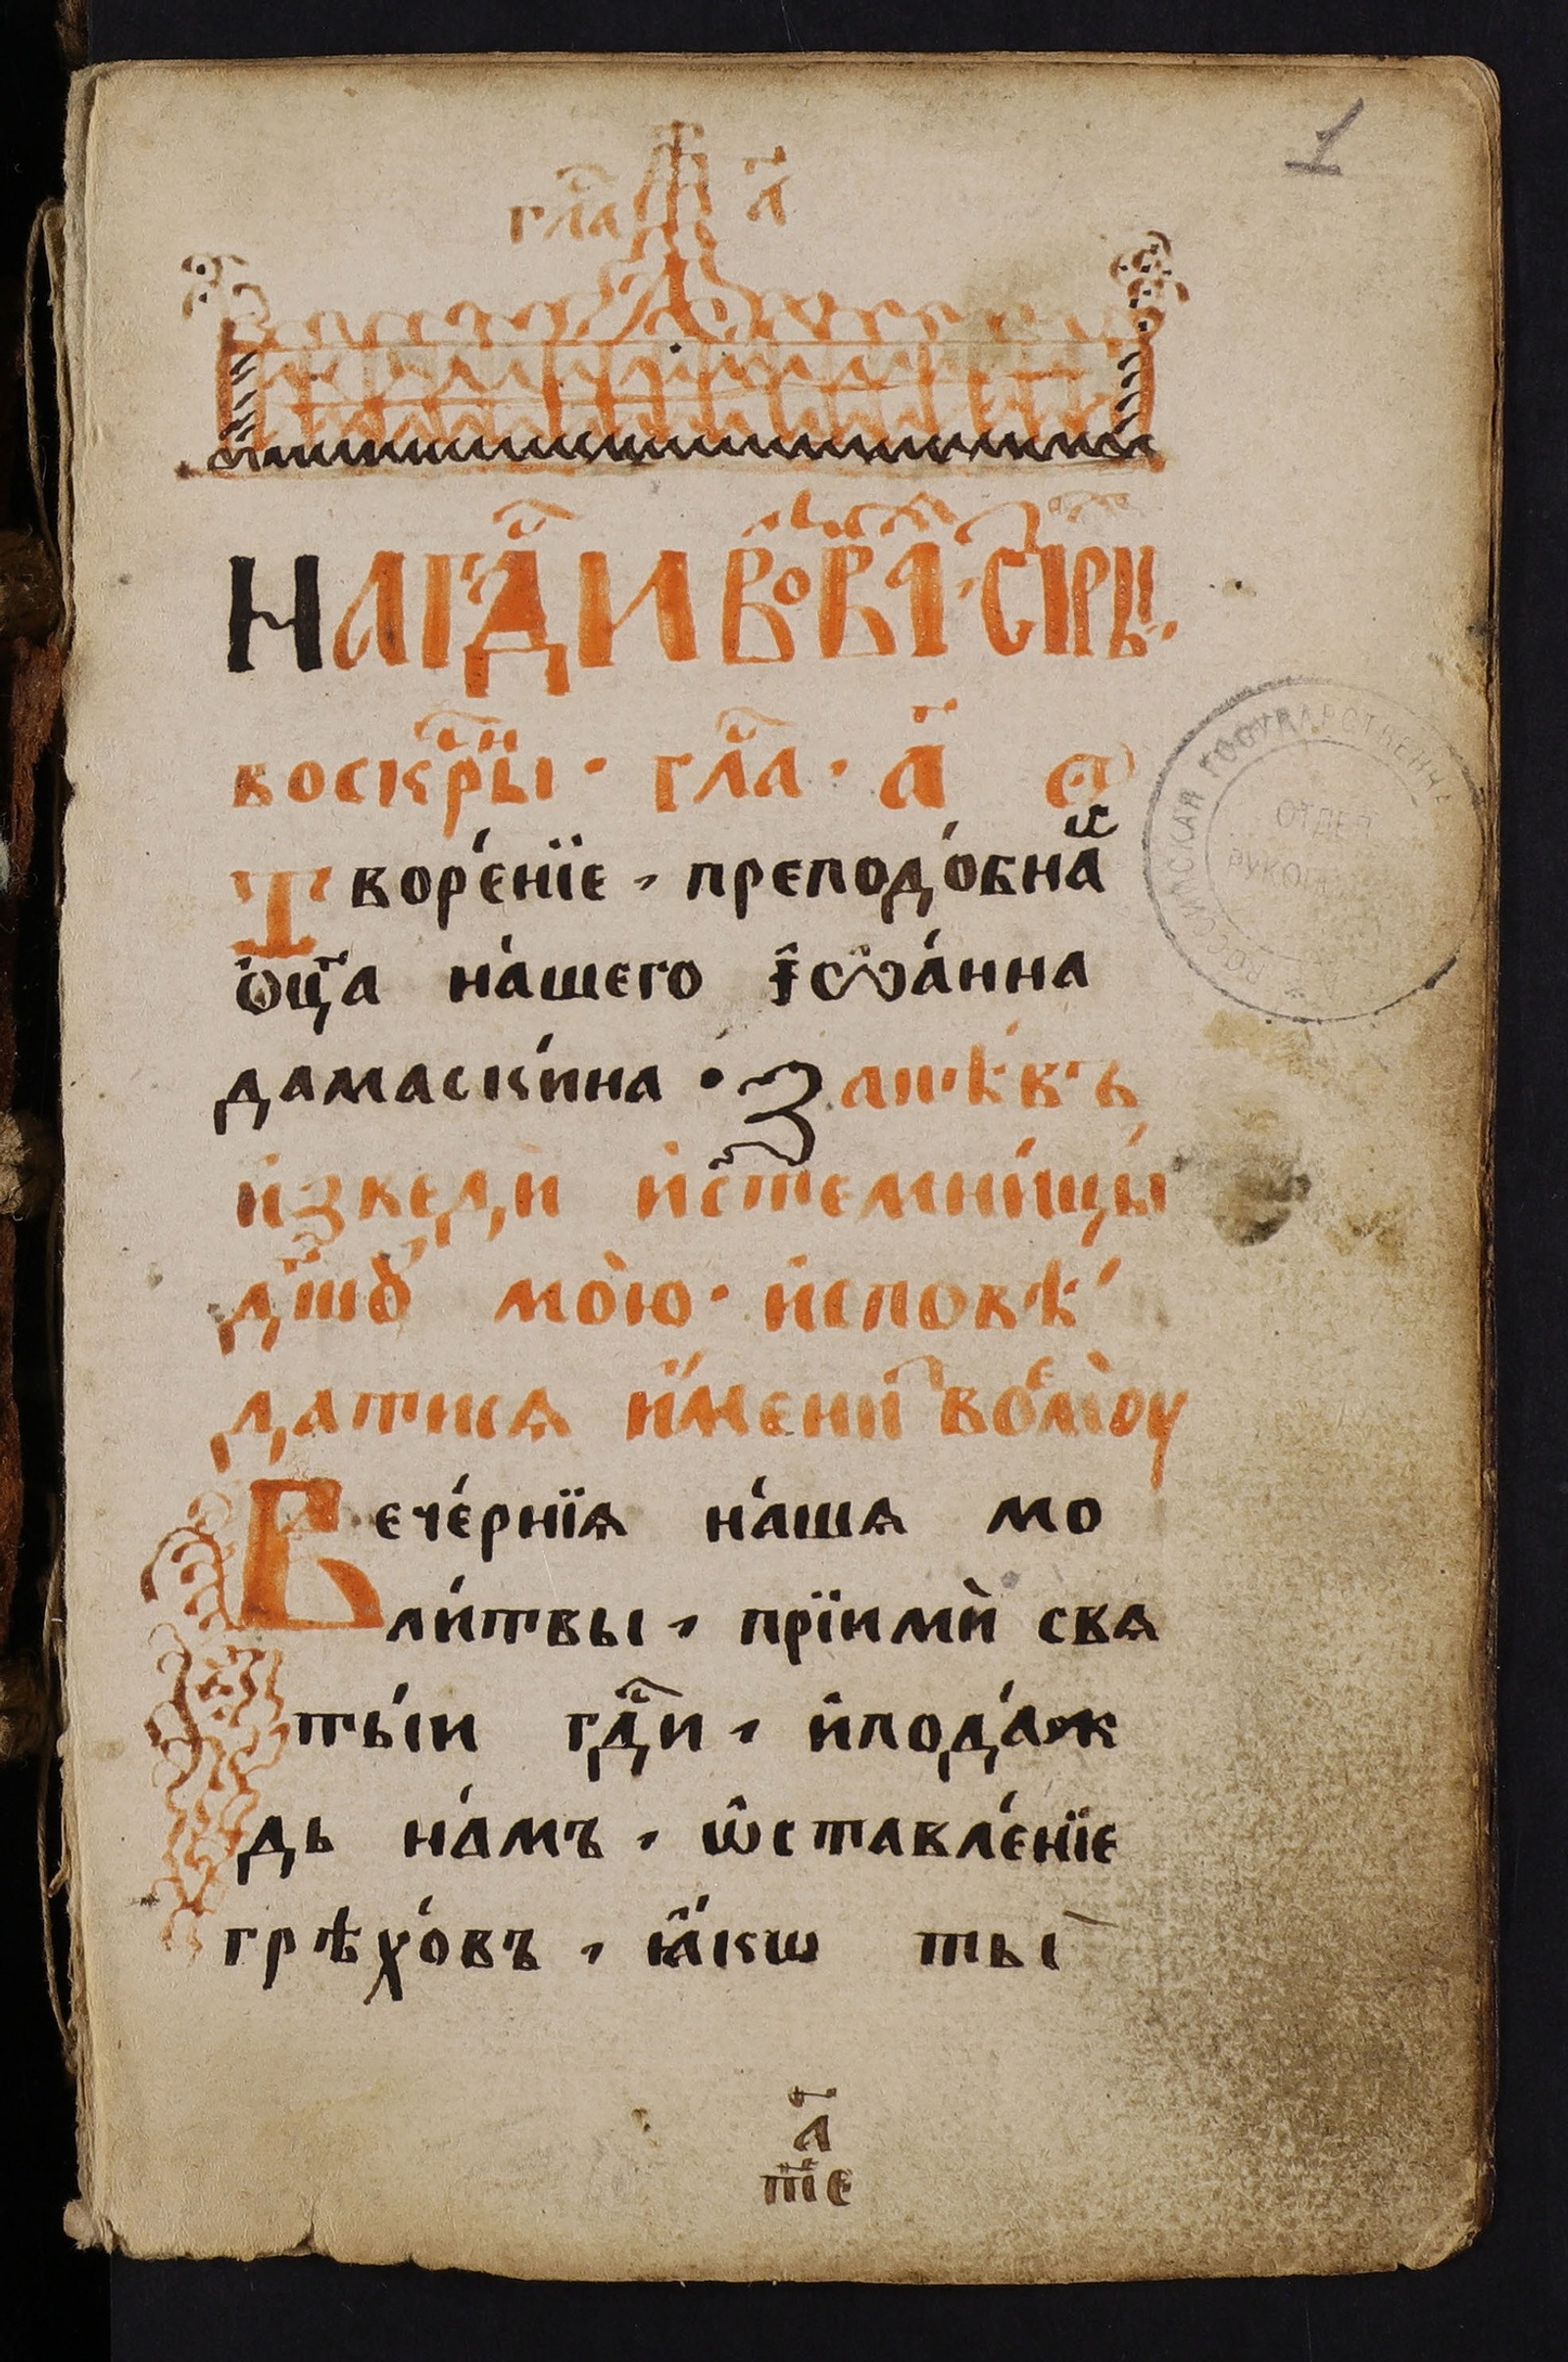 1
гла҃ а҃
НА ГД҇И ВО ВА҃ СТРЫ
воскрⷭ҇ны · гла҃ · а҃
Творе́нїе , преподо́бна
ѻц҃а на́шего І҆ѡа́нна
дамаски́на · Запѣвъ
и҆зведѝ и҆стемни́цы
дш҃ꙋ мою̀ · и҆сповѣ́
датися и҆́мени твоемоу
Вече́рнїѧ на́шѧ мо
ли́твы , прїимѝ свѧ
ты́и гдⷭ҇и , и҆пода́ж
дь на́мъ , ѡ҆ставле́нїе
грѣхо́въ , ꙗ҆́кѡ ты̀
а҃
РОССИЙСКАЯ ГОСУДАРСТВЕННА
ОТДЕЛ
РУКОП